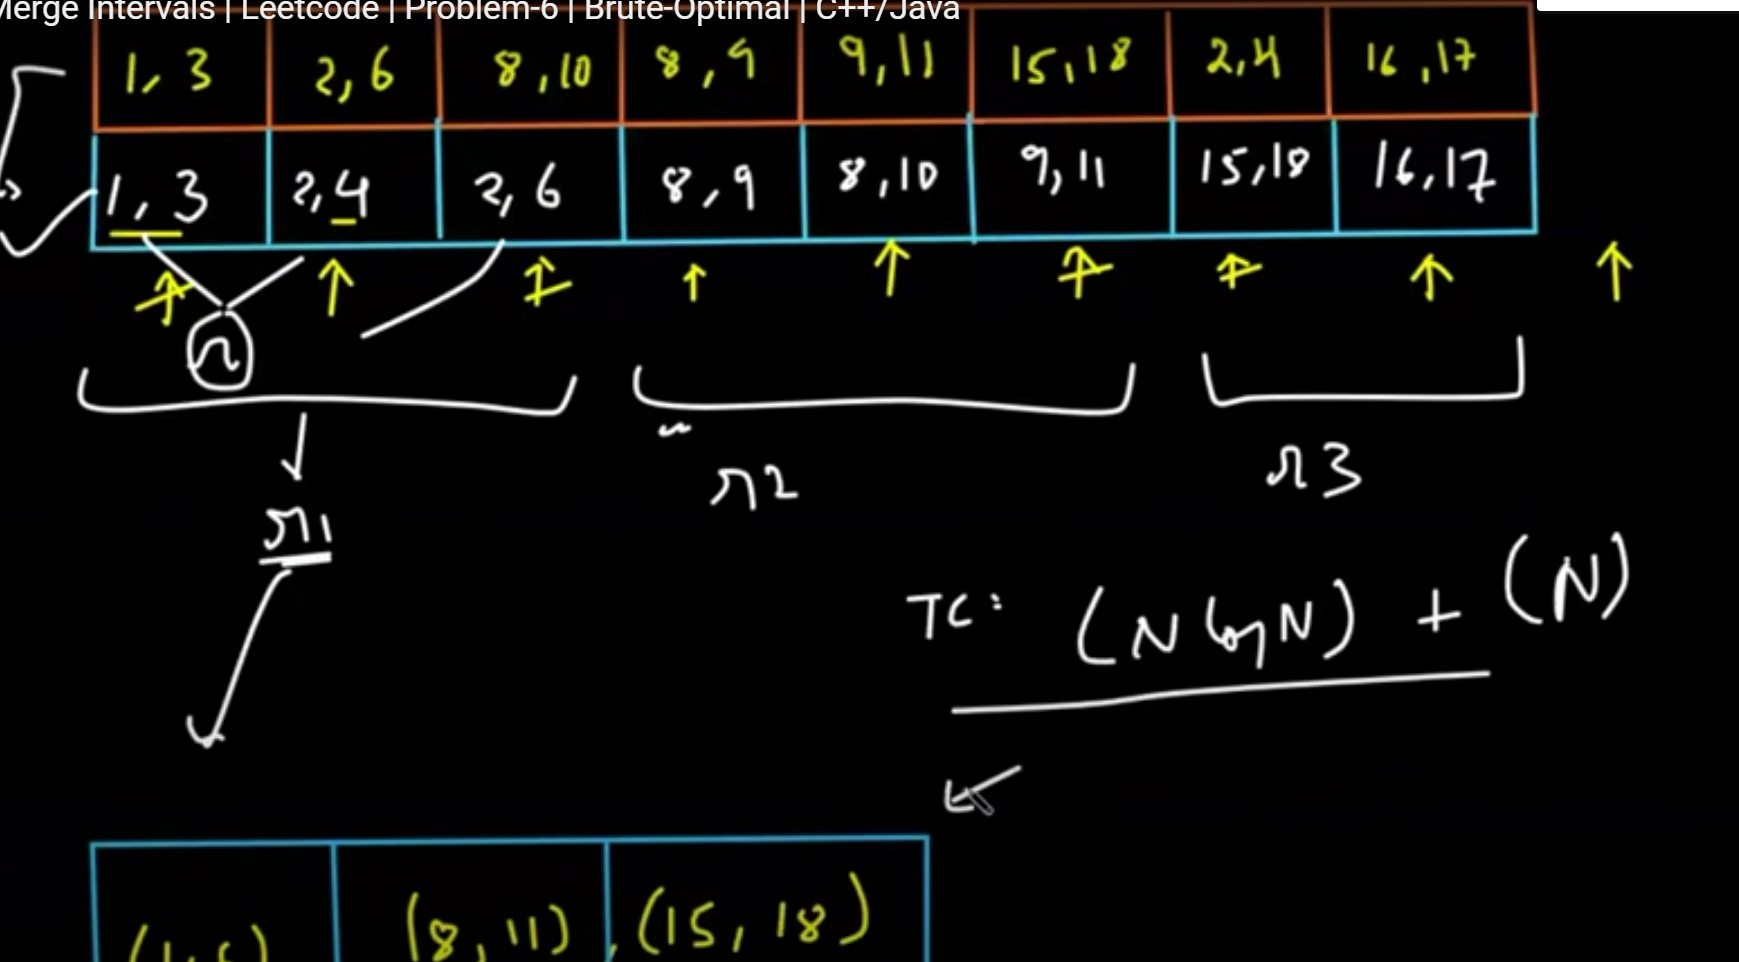 Merge Intervals | Leetcode | Problem-6 | Brute-Optimal | C++/Java
1, 3 2, 6 8, 10 8, 9 9, 11 15, 18 2, 4 16, 17
1, 3 2, 4 2, 6 8, 9 8, 10 9, 11 15, 18 16, 17
r
r2 r3
r1
TC: (N log N) + (N)
(8, 11), (15, 18)